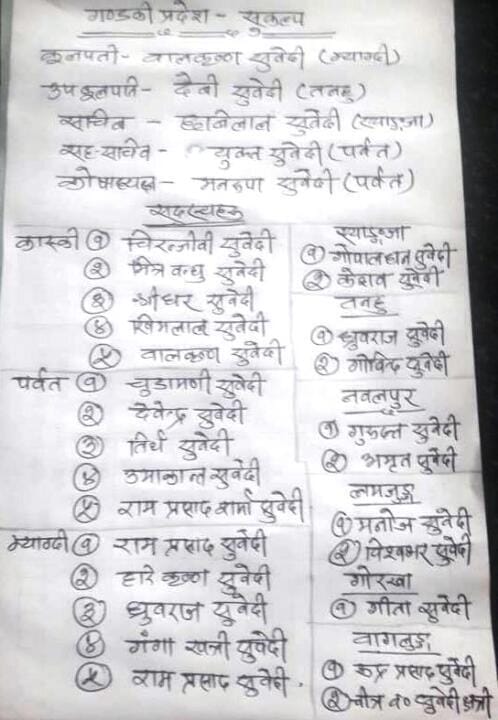 गण्डकी प्रदेश - सुकल्प
कूलपती - बालकृष्ण सुवेदी (म्याग्दी)
उपकूलपति - देवी सुवेदी (तनहु)
सचिव - छविलाल सुवेदी (स्याङ्जा)
सह-सचिव - युक्त सुवेदी (पर्वत)
कोषाध्यक्ष - मनरुपा सुवेदी (पर्वत)
सदस्यहरू
कास्की १ चिरन्जीवी सुवेदी
२ मित्र बन्धु सुवेदी
३ श्रीधर सुवेदी
४ खिमलाल सुवेदी
५ बालकृष्ण सुवेदी
पर्वत १ चुडामणी सुवेदी
२ देवेन्द्र सुवेदी
३ तिर्थ सुवेदी
४ उमाकान्त सुवेदी
५ राम प्रसाद शर्मा सुवेदी
म्याग्दी १ राम प्रसाद सुवेदी
२ हरि कृष्ण सुवेदी
३ ध्रुवराज सुवेदी
४ गंगा खत्री सुवेदी
५ राम प्रसाद सुवेदी .
स्याङ्जा
१ गोपाल सुवेदी
२ केशव सुवेदी
तनहु
१ ध्रुवराज सुवेदी
२ गोविन्द सुवेदी
नवलपुर
१ गुरुदत्त सुवेदी
२ अमृत सुवेदी
लमजुङ्ग
१ मनोज सुवेदी
२ विश्वम्भर सुवेदी
गोरखा
१ गीता सुवेदी
वागलुङ्ग
१ रुद्र प्रसाद सुवेदी
२ ब० सुवेदी क्षेत्री